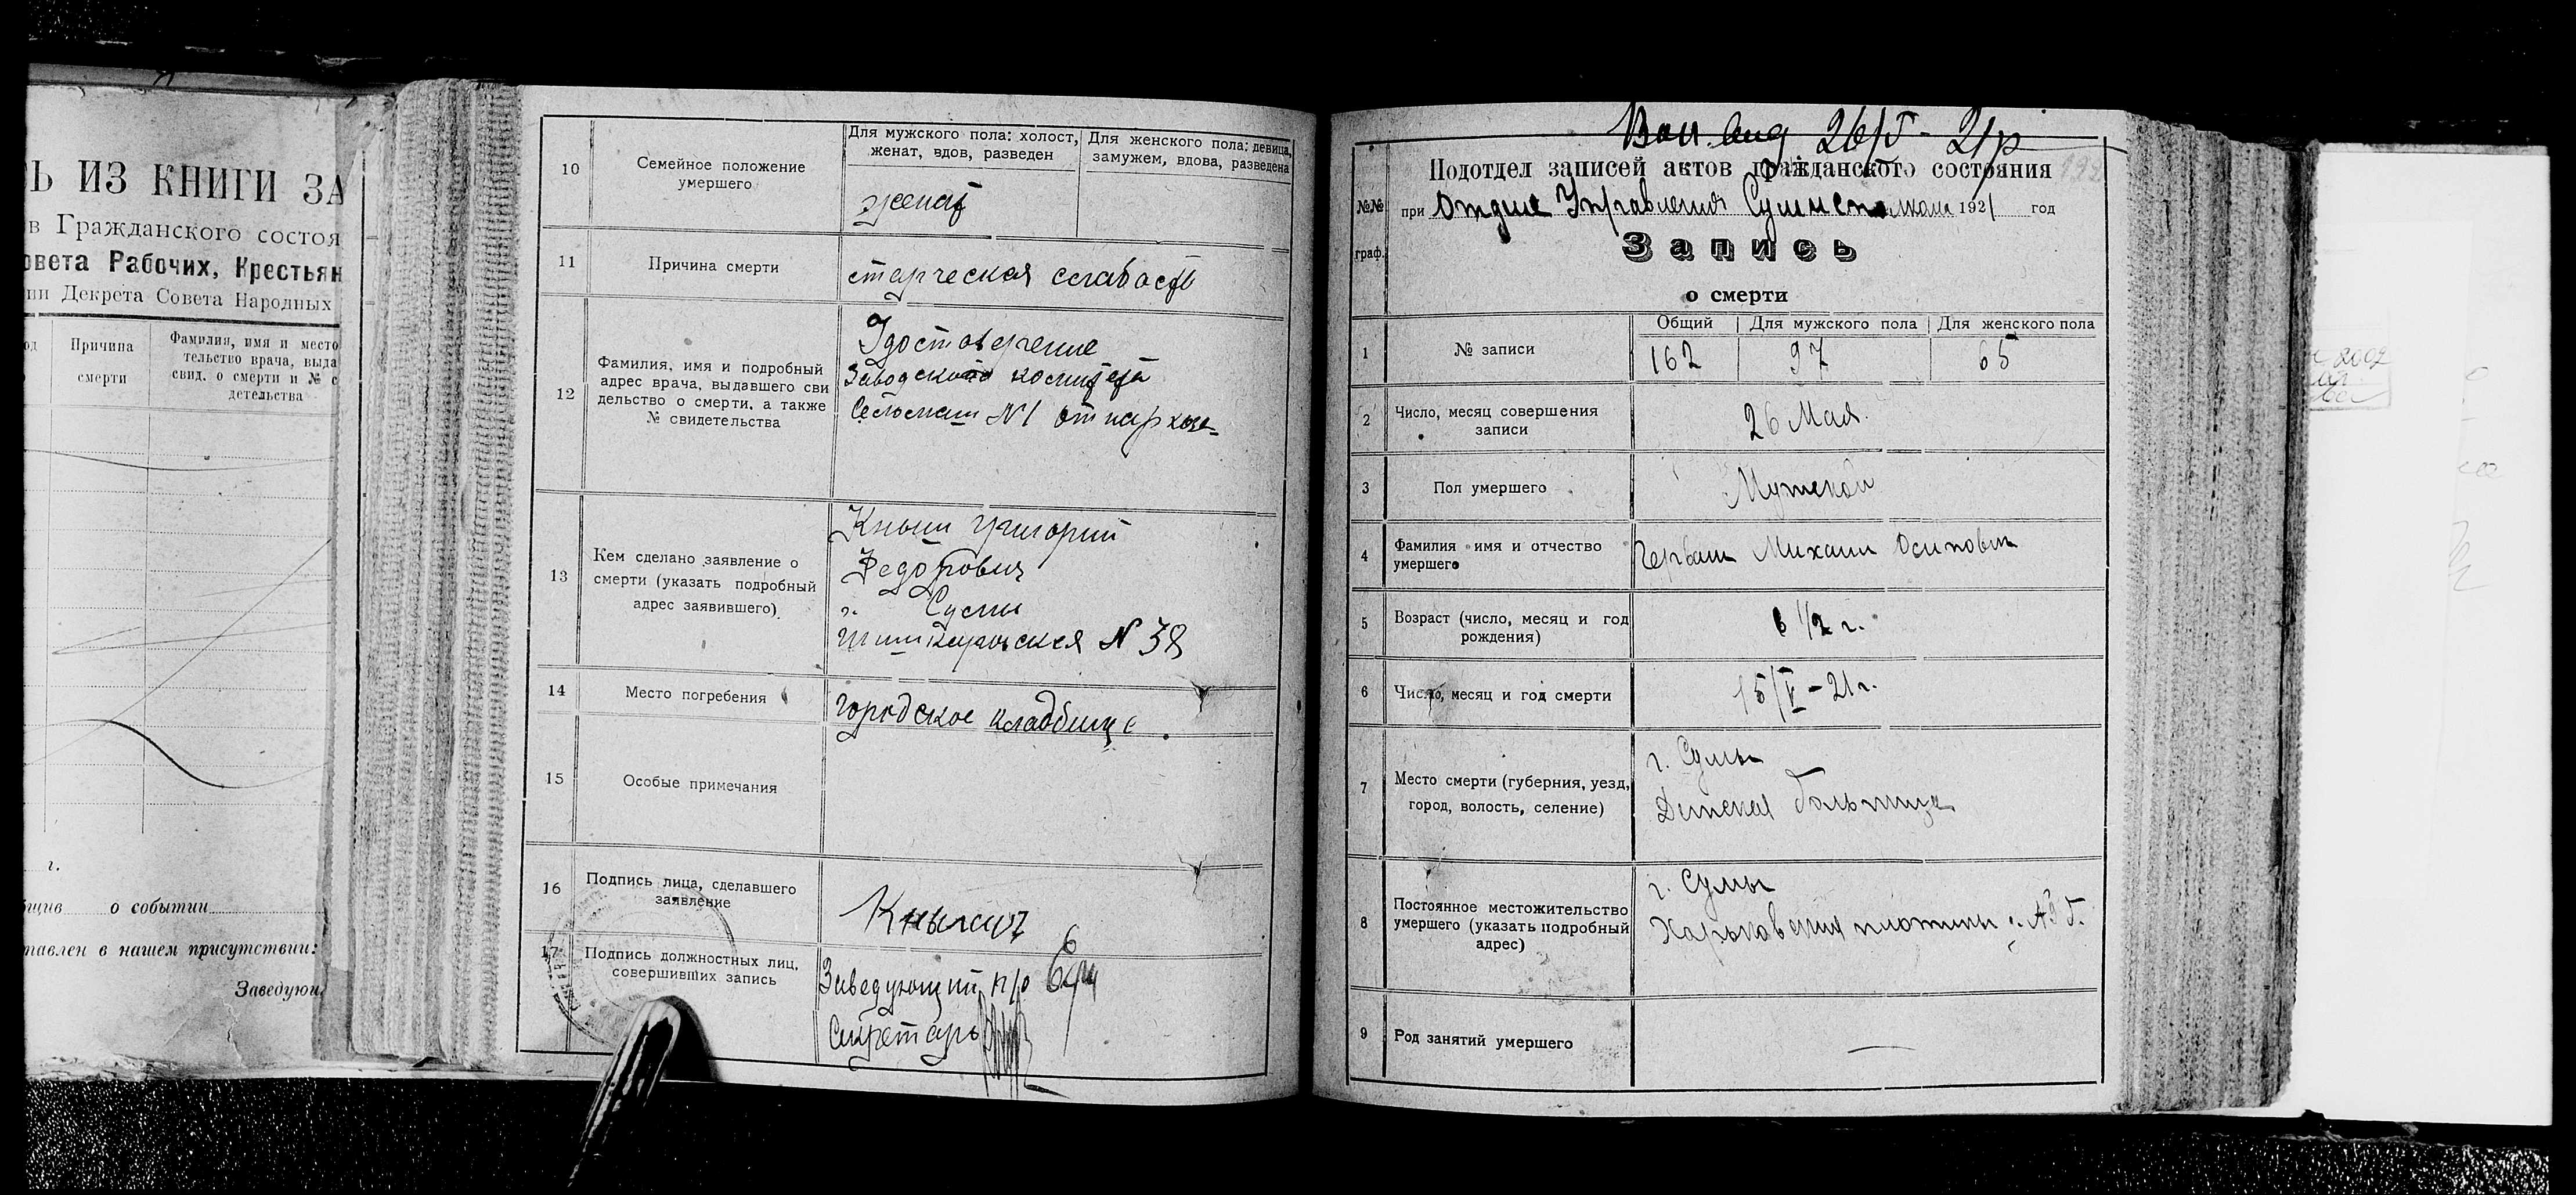 Ь ИЗ КНИГИ ЗА
в Гражданского состоя
овета Рабочих, Крестьян
ии Декрета Совета Народных
Причина
смерти
Фамилия, имя и место
тельство врача, выда
свид. о смерти и № с
детельства
г.
о событии
тавлен в нашем присутствии:
Заведую
10
Семейное положение
умершего
Для мужского пола: холост,
женат, вдов, разведен
Для женского пола: девица,
замужем, вдова, разведена
женат
11
Причина смерти
старческая слабость
12
Фамилия, имя и подробный
адрес врача, выдавшего сви
дельство о смерти, а также
№ свидетельства
Удостоверение
Заводского комитета
Сельмаш №1
13
Кем сделано заявление о
смерти (указать подробный
адрес заявившего)
Кныш Григорий
Федорович
г. Сумы
N 38
14
Место погребения
городское кладбище
15
Особые примечания
16
Подпись лица, сделавшего
заявление
17
Подпись должностных лиц,
совершивших запись
Заведующий п/о
Секретарь
26/V - 21р
Подотдел записей актов гражданского состояния
№№
граф.
при Отделе Управления 1921 год
Запись
о смерти
1
№ записи
Общий
Для мужского пола
Для женского пола
162
97
65
2
Число, месяц совершения
записи
26 Мая.
3
Пол умершего
Мужской
4
Фамилия имя и отчество
умершего
Михаил Осипович
5
Возраст (число, месяц и год
рождения)
6 1/2 г.
6
Число, месяц и год смерти
15/V - 21 г.
7
Место смерти (губерния, уезд,
город, волость, селение)
г. Сумы
Детская больница
8
Постоянное местожительство
умершего (указать подробный
адрес)
г. Сумы
Харьковская
9
Род занятий умершего
—